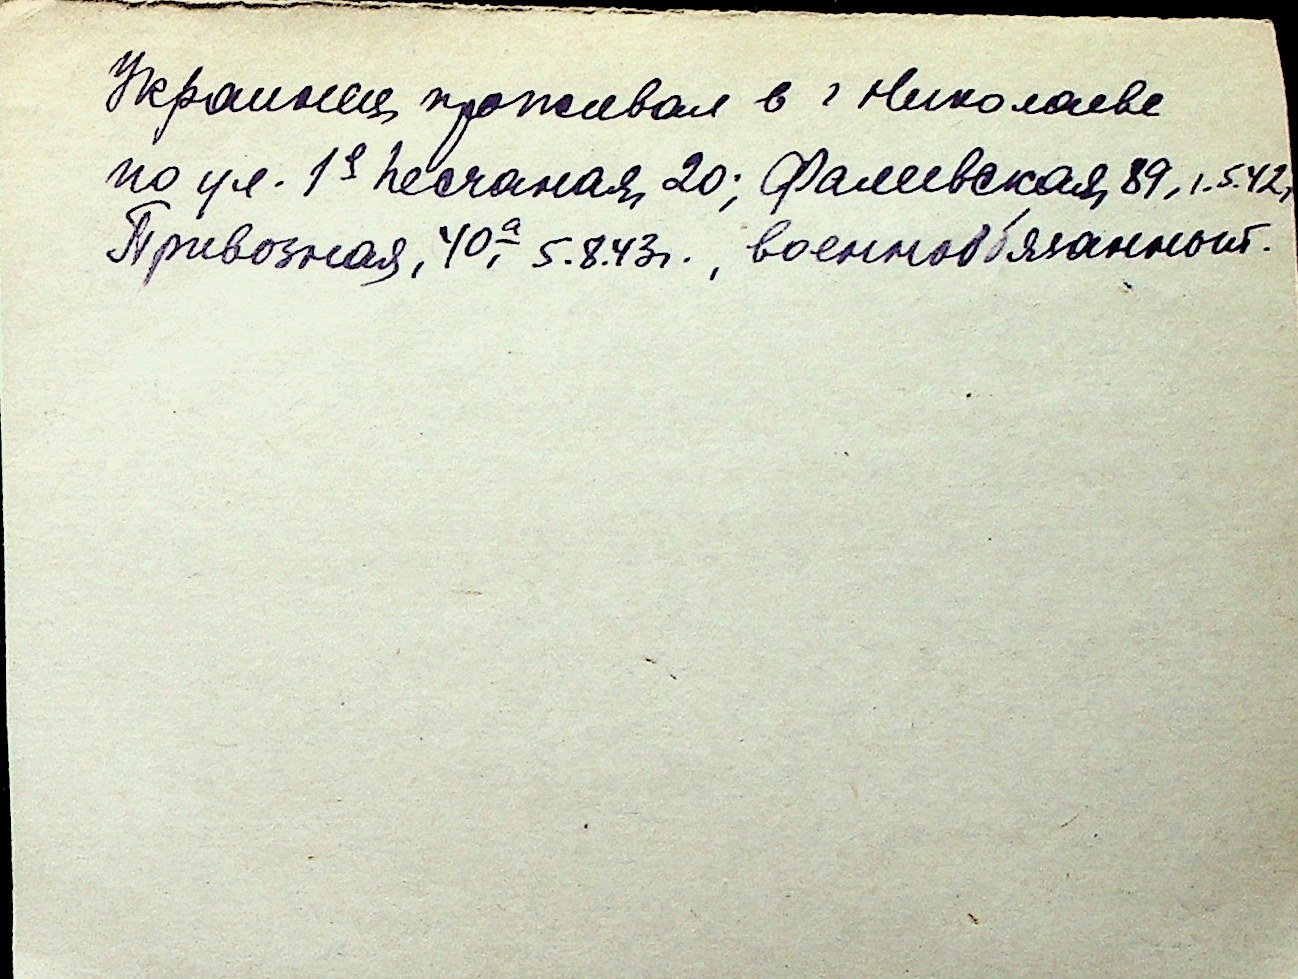 Украинец проживал в г Николаеве
по ул. 1я Песчаная, 20; Фалеевская, 89, 1.5.42,
Привозная, 40,а 5.8.43г., военнообязанный.